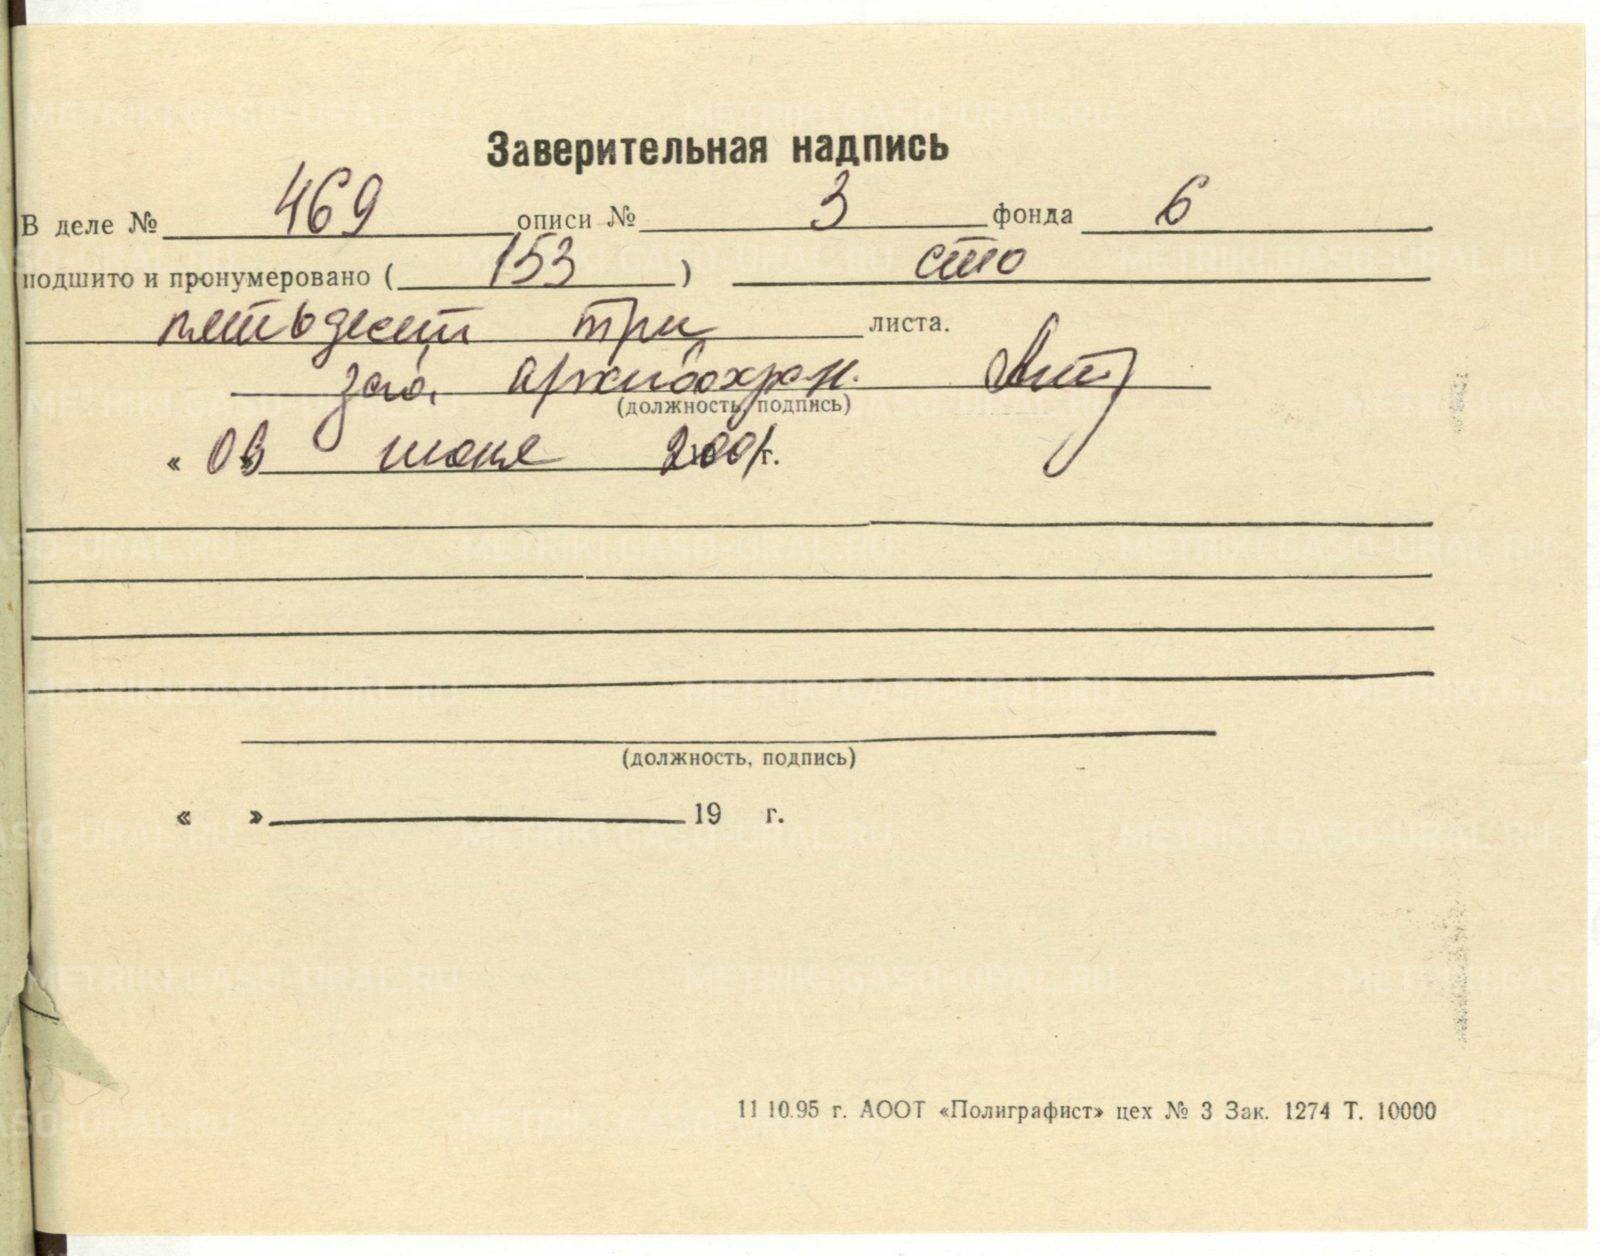 Заверительная надпись
В деле № 469 описи № 3 фонда 6
подшито и пронумеровано ( 153 ) сто
пятьдесят три листа.
зав. архивохран.
(должность, подпись)
« 03 » июня 2001 г.
(должность, подпись)
« » 19 г.
11 10.95 г. АООТ «Полиграфист» цех № 3 Зак. 1274 Т. 10000
METRIKI.GASO-URAL.RU